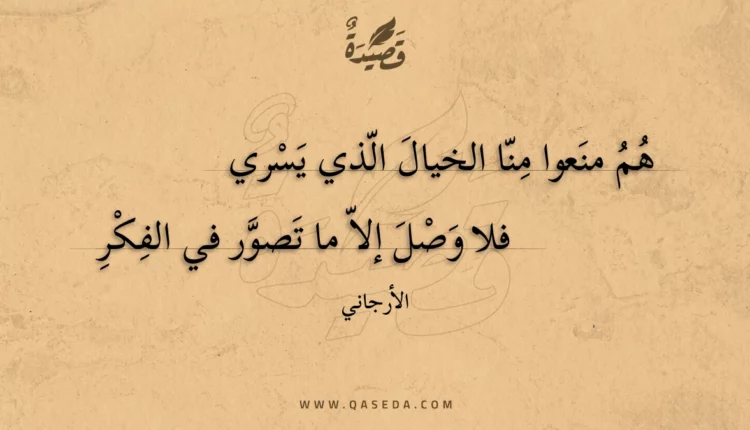 قَصِيدَةٌ
هُمُ منَعوا مِنّا الخيالَ الّذي يَسْري
فلا وَصْلَ إلاّ ما تَصوَّر في الفِكْرِ
الأرجاني
WWW.QASEDA.COM